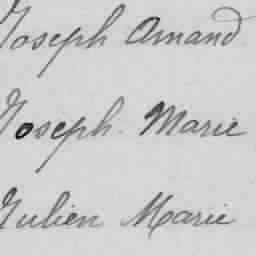 Joseph Amand
Joseph. Marie
Julien Marie